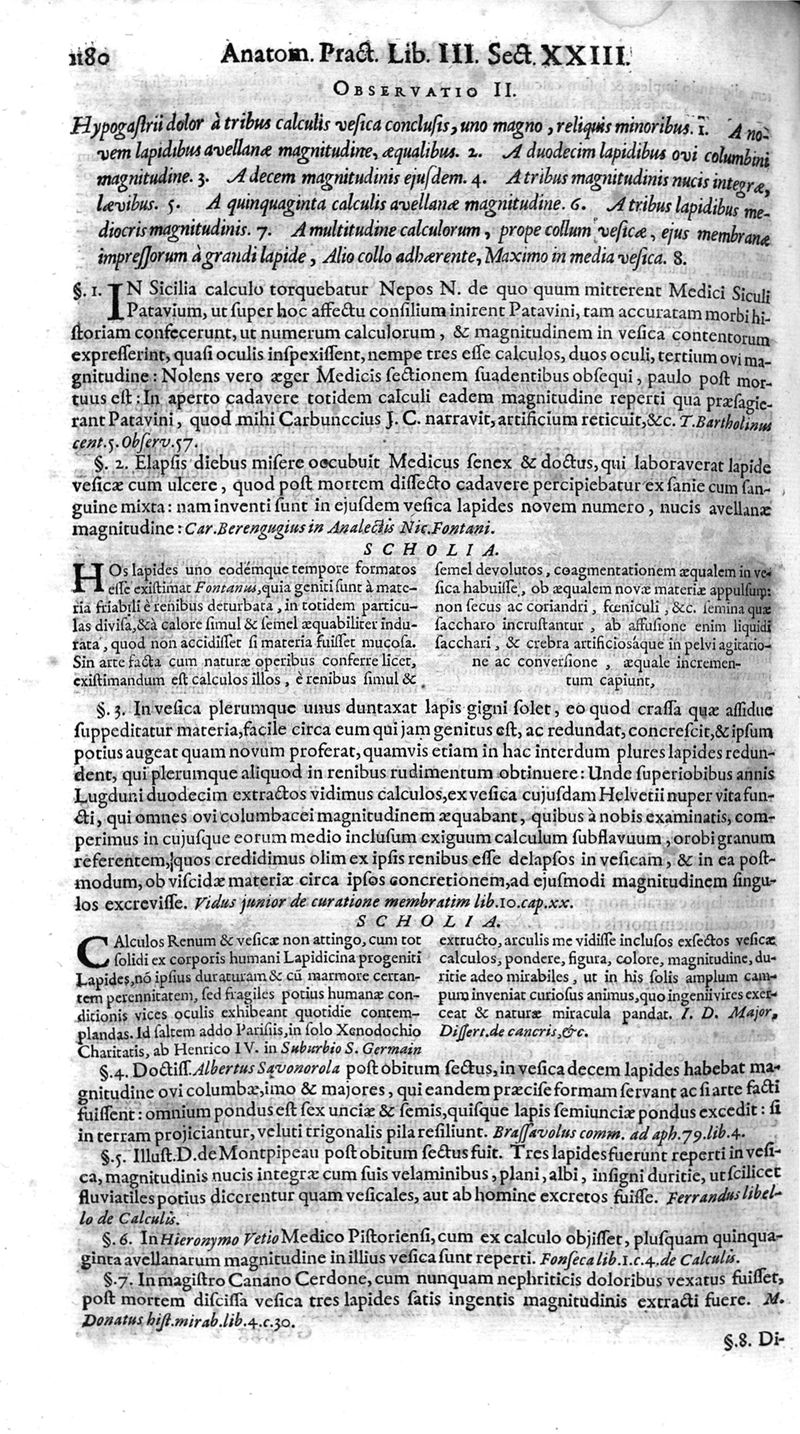 1180 Anatom. Pract. Lib. III. Sect. XXIII.
OBSERVATIO II.
Hypogaſtrii dolor à tribus calculis veſica concluſis, uno magno, reliquis minoribus. 1. A no-
vem lapidibus avellanæ magnitudine, æqualibus. 2. A duodecim lapidibus ovi columbini
magnitudine. 3. A decem magnitudinis ejuſdem. 4. A tribus magnitudinis nucis integræ,
lævibus. 5. A quinquaginta calculis avellanæ magnitudine. 6. A tribus lapidibus me-
diocris magnitudinis. 7. A multitudine calculorum, prope collum veſicæ, ejus membranæ
impreſſorum à grandi lapide, Alio collo adhærente, Maximo in media veſica. 8.
§. 1. IN Sicilia calculo torquebatur Nepos N. de quo quum mitterent Medici Siculi
Patavium, ut ſuper hoc affectu conſilium inirent Patavini, tam accuratam morbi hi-
ſtoriam confecerunt, ut numerum calculorum, & magnitudinem in veſica contentorum
expreſſerint, quaſi oculis inſpexiſſent, nempe tres eſſe calculos, duos oculi, tertium ovi ma-
gnitudine: Nolens vero æger Medicis ſectionem ſuadentibus obſequi, paulo poſt mor-
tuus eſt: In aperto cadavere totidem calculi eadem magnitudine reperti qua præſagie-
rant Patavini, quod mihi Carbunccius J. C. narravit, artificium reticuit, &c. T. Bartholinus
cent. 5. Obſerv. 57.
§. 2. Elapſis diebus miſere occubuit Medicus ſenex & doctus, qui laboraverat lapide
veſicæ cum ulcere, quod poſt mortem diſſecto cadavere percipiebatur ex ſanie cum ſan-
guine mixta: nam inventi ſunt in ejuſdem veſica lapides novem numero, nucis avellanæ
magnitudine: Car. Berengugius in Analectis Nic. Fontani.
SCHOLIA.
HOs lapides uno eodémque tempore formatos
eſſe exiſtimat Fontanus, quia geniti ſunt à mate-
ria friabili è renibus deturbata, in totidem particu-
las diviſa, &à calore ſimul & ſemel æquabiliter indu-
rata, quod non accidiſſet ſi materia fuiſſet mucoſa.
Sin arte facta cum naturæ operibus conferre licet,
exiſtimandum eſt calculos illos, è renibus ſimul &
ſemel devolutos, coagmentationem æqualem in ve-
ſica habuiſſe, ob æqualem novæ materiæ appulſum:
non ſecus ac coriandri, fœniculi, &c. ſemina quæ
ſaccharo incruſtantur, ab affuſione enim liquidi
ſacchari, & crebra artificiosáque in pelvi agitatio-
ne ac converſione, æquale incremen-
tum capiunt,
§. 3. In veſica plerumque unus duntaxat lapis gigni ſolet, eo quod craſſa quæ aſſidue
ſuppeditatur materia, facile circa eum qui jam genitus eſt, ac redundat, concreſcit, & ipſum
potius augeat quam novum proferat, quamvis etiam in hac interdum plures lapides redun-
dent, qui plerumque aliquod in renibus rudimentum obtinuere: Unde ſuperiobibus annis
Lugduni duodecim extractos vidimus calculos, ex veſica cujuſdam Helvetii nuper vita fun-
cti, qui omnes ovi columbacei magnitudinem æquabant, quibus à nobis examinatis, com-
perimus in cujuſque eorum medio incluſum exiguum calculum ſubflavuum, orobi granum
referentem, quos credidimus olim ex ipſis renibus eſſe delapſos in veſicam, & in ea poſt-
modum, ob viſcidæ materiæ circa ipſos concretionem, ad ejuſmodi magnitudinem ſingu-
los excreviſſe. Vidus junior de curatione membratim lib. 10. cap. xx.
SCHOLIA.
CAlculos Renum & veſicæ non attingo, cum tot
ſolidi ex corporis humani Lapidicina progeniti
Lapides, nō ipſius duraturam & cū marmore certan-
tem perennitatem, ſed fragiles potius humanæ con-
ditionis vices oculis exhibeant quotidie contem-
plandas. Id ſaltem addo Pariſiis, in ſolo Xenodochio
Charitatis, ab Henrico IV. in Suburbio S. Germain
extructo, arculis me vidiſſe incluſos exſectos veſicæ
calculos, pondere, figura, colore, magnitudine, du-
ritie adeo mirabiles, ut in his ſolis amplum cam-
pum inveniat curioſus animus, quo ingenii vires exer-
ceat & naturæ miracula pandat. I. D. Major,
Diſſert. de cancris, &c.
§. 4. Doctiſſ. Albertus Savonorola poſt obitum ſectus, in veſica decem lapides habebat ma-
gnitudine ovi columbæ, imo & majores, qui eandem præciſe formam ſervant ac ſi arte facti
fuiſſent: omnium pondus eſt ſex unciæ & ſemis, quiſque lapis ſemiunciæ pondus excedit: ſi
in terram projiciantur, veluti trigonalis pila reſiliunt. Braſſavolus comm. ad aph. 79. lib. 4.
§. 5. Illuſt. D. de Montpipeau poſt obitum ſectus fuit. Tres lapides fuerunt reperti in veſi-
ca, magnitudinis nucis integræ cum ſuis velaminibus, plani, albi, inſigni duritie, ut ſcilicet
fluviatiles potius dicerentur quam veſicales, aut ab homine excretos fuiſſe. Ferrandus libel-
lo de Calculis.
§. 6. In Hieronymo Vetio Medico Piſtorienſi, cum ex calculo objiſſet, pluſquam quinqua-
ginta avellanarum magnitudine in illius veſica ſunt reperti. Fonſeca lib. 1. c. 4. de Calculis.
§. 7. In magiſtro Canano Cerdone, cum nunquam nephriticis doloribus vexatus fuiſſet,
poſt mortem diſciſſa veſica tres lapides ſatis ingentis magnitudinis extracti fuere. M.
Donatus hiſt. mirab. lib. 4. c. 30.
§. 8. Di-